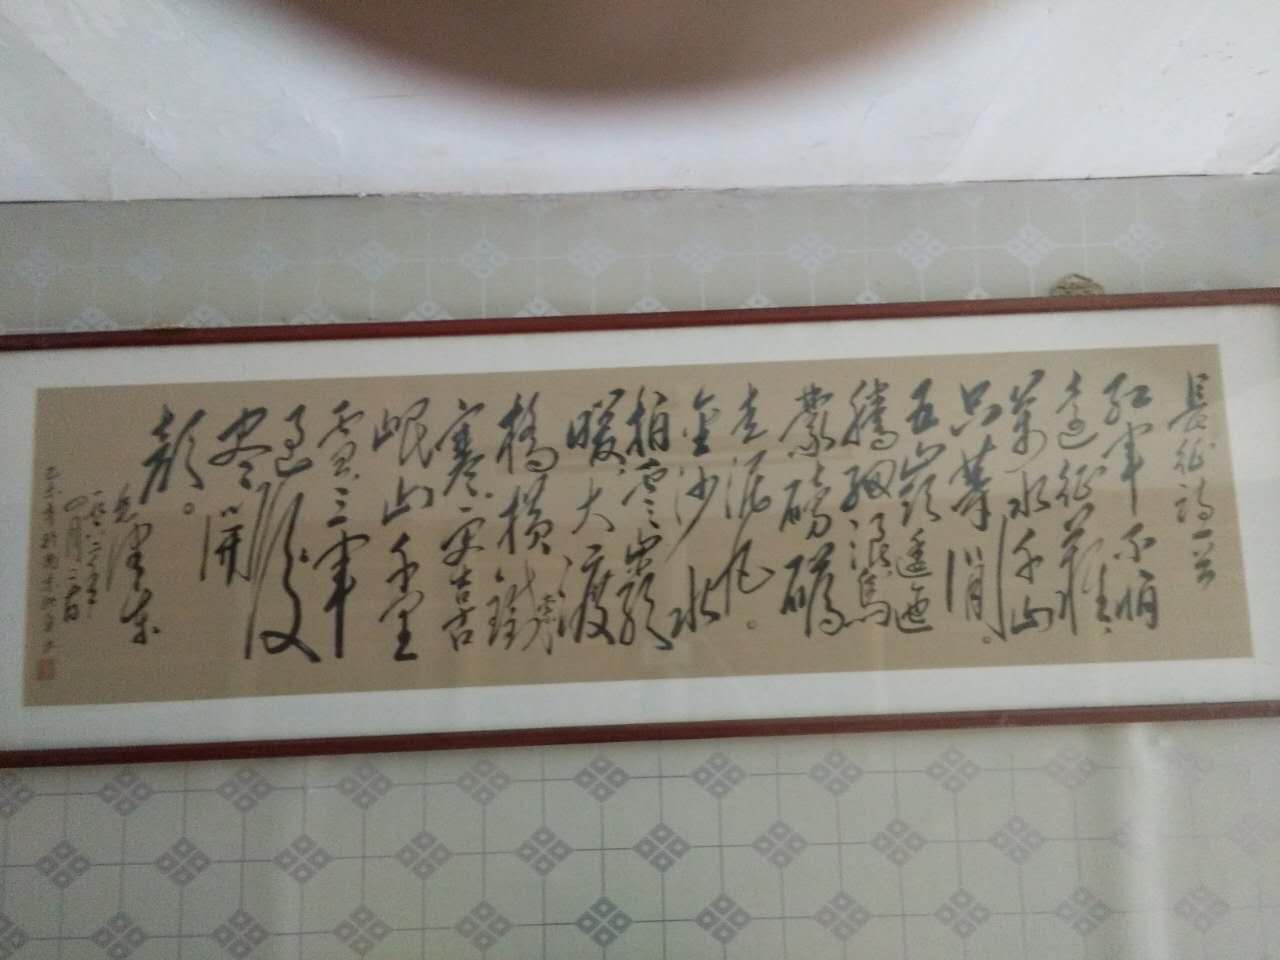 長征詩一首
紅軍不怕
遠征難，
萬水千山
只等閒。
五嶺逶迤
騰細浪，烏
蒙磅礴
走泥丸。
金沙水
拍雲崖
暖，大渡
橋橫鐵索
寒。更喜
岷山千里
雪，三軍
過後
尽開
顏。
毛澤東
一九六二年
四月二十日